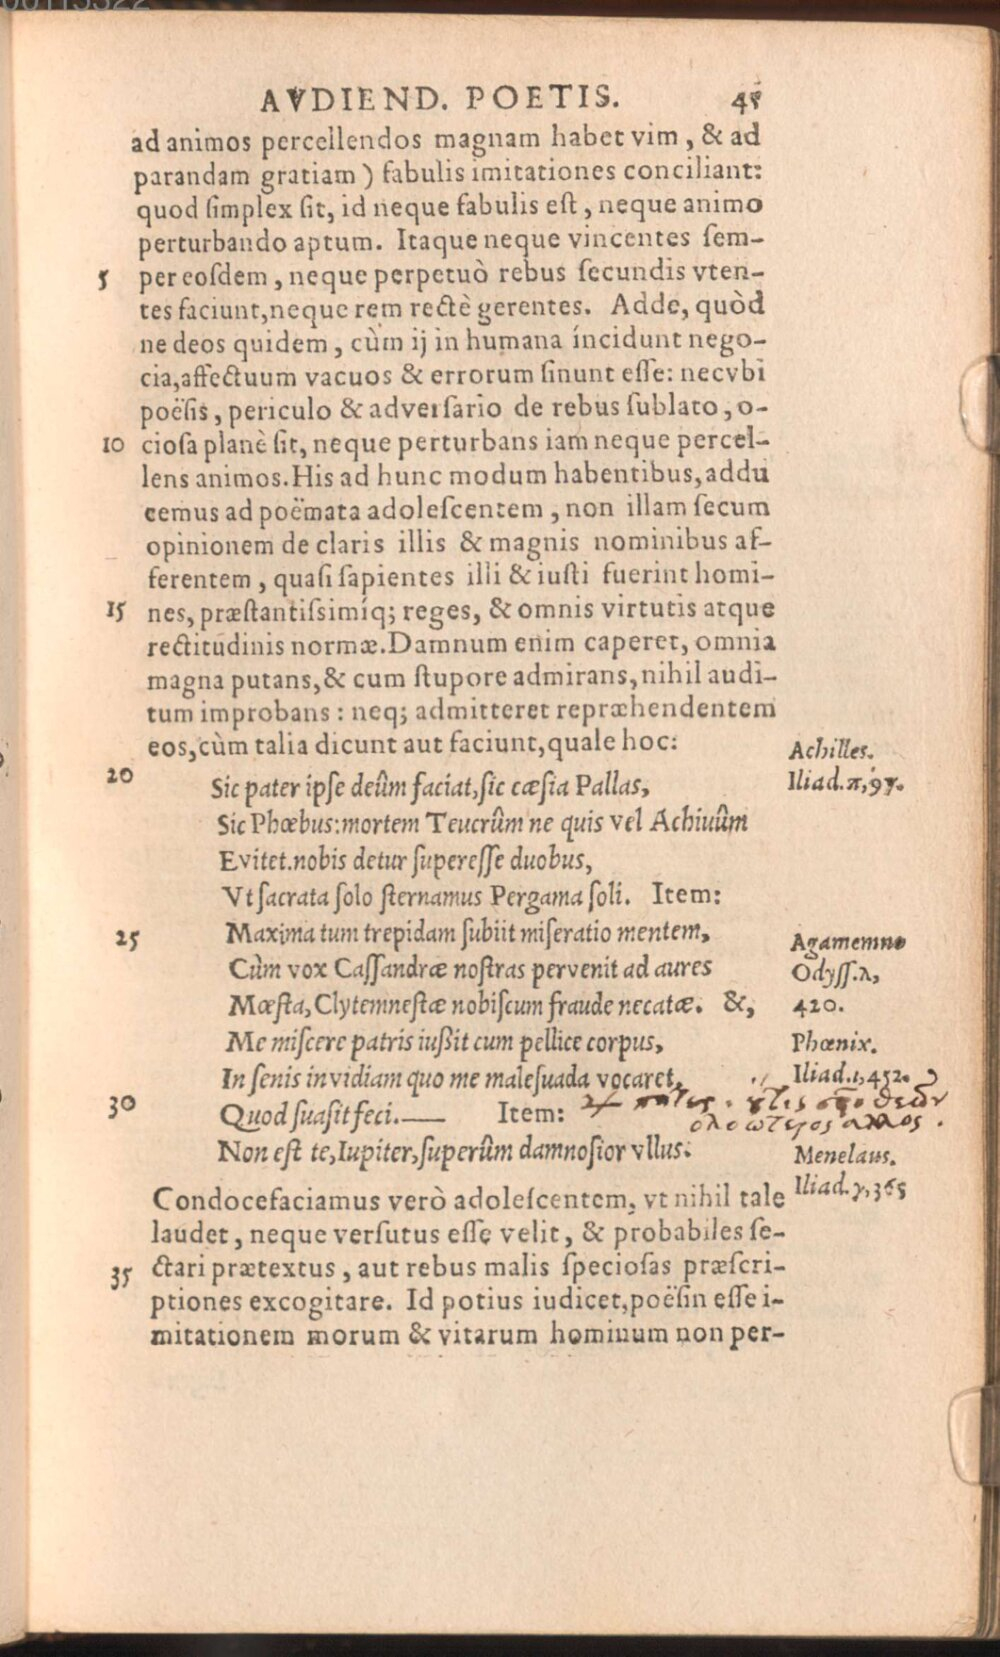 AVDIEND. POETIS. 45
ad animos percellendos magnam habet vim, & ad
parandam gratiam) fabulis imitationes conciliant:
quod simplex sit, id neque fabulis est, neque animo
perturbando aptum. Itaque neque vincentes sem-
5 per eosdem, neque perpetuò rebus secundis vten-
tes faciunt, neque rem rectè gerentes. Adde, quòd
ne deos quidem, cùm ij in humana incidunt nego-
cia, affectuum vacuos & errorum sinunt esse: necvbi
poësis, periculo & adversario de rebus sublato, o-
10 ciosa planè sit, neque perturbans iam neque percel-
lens animos. His ad hunc modum habentibus, addu
cemus ad poëmata adolescentem, non illam secum
opinionem de claris illis & magnis nominibus af-
ferentem, quasi sapientes illi & iusti fuerint homi-
15 nes, præstantissimíq; reges, & omnis virtutis atque
rectitudinis normæ. Damnum enim caperet, omnia
magna putans, & cum stupore admirans, nihil audi-
tum improbans: neq; admitteret repræhendentem
eos, cùm talia dicunt aut faciunt, quale hoc:
Achilles.
20 Sic pater ipse deûm faciat, sic cæsia Pallas,
Iliad. π, 97.
Sic Phœbus: mortem Teucrûm ne quis vel Achiuûm
Evitet. nobis detur superesse duobus,
Vt sacrata solo sternamus Pergama soli. Item:
25 Maxima tum trepidam subiit miseratio mentem,
Agamemno
Cùm vox Cassandræ nostras pervenit ad aures
Odyss. λ,
Mœsta, Clytemnestæ nobiscum fraude necatæ. &,
420.
Me miscere patris iußit cum pellice corpus,
Phœnix.
In senis invidiam quo me malesuada vocaret,
Iliad. ι, 452.
30 Quod suasit feci.— Item:
ολοωτερος αλλος.
Non est te, Iupiter, superûm damnosior vllus.
Menelaus.
Iliad. γ, 365
Condocefaciamus verò adolescentem, vt nihil tale
laudet, neque versutus esse velit, & probabiles se-
35 ctari prætextus, aut rebus malis speciosas præscri-
ptiones excogitare. Id potius iudicet, poësin esse i-
mitationem morum & vitarum hominum non per-